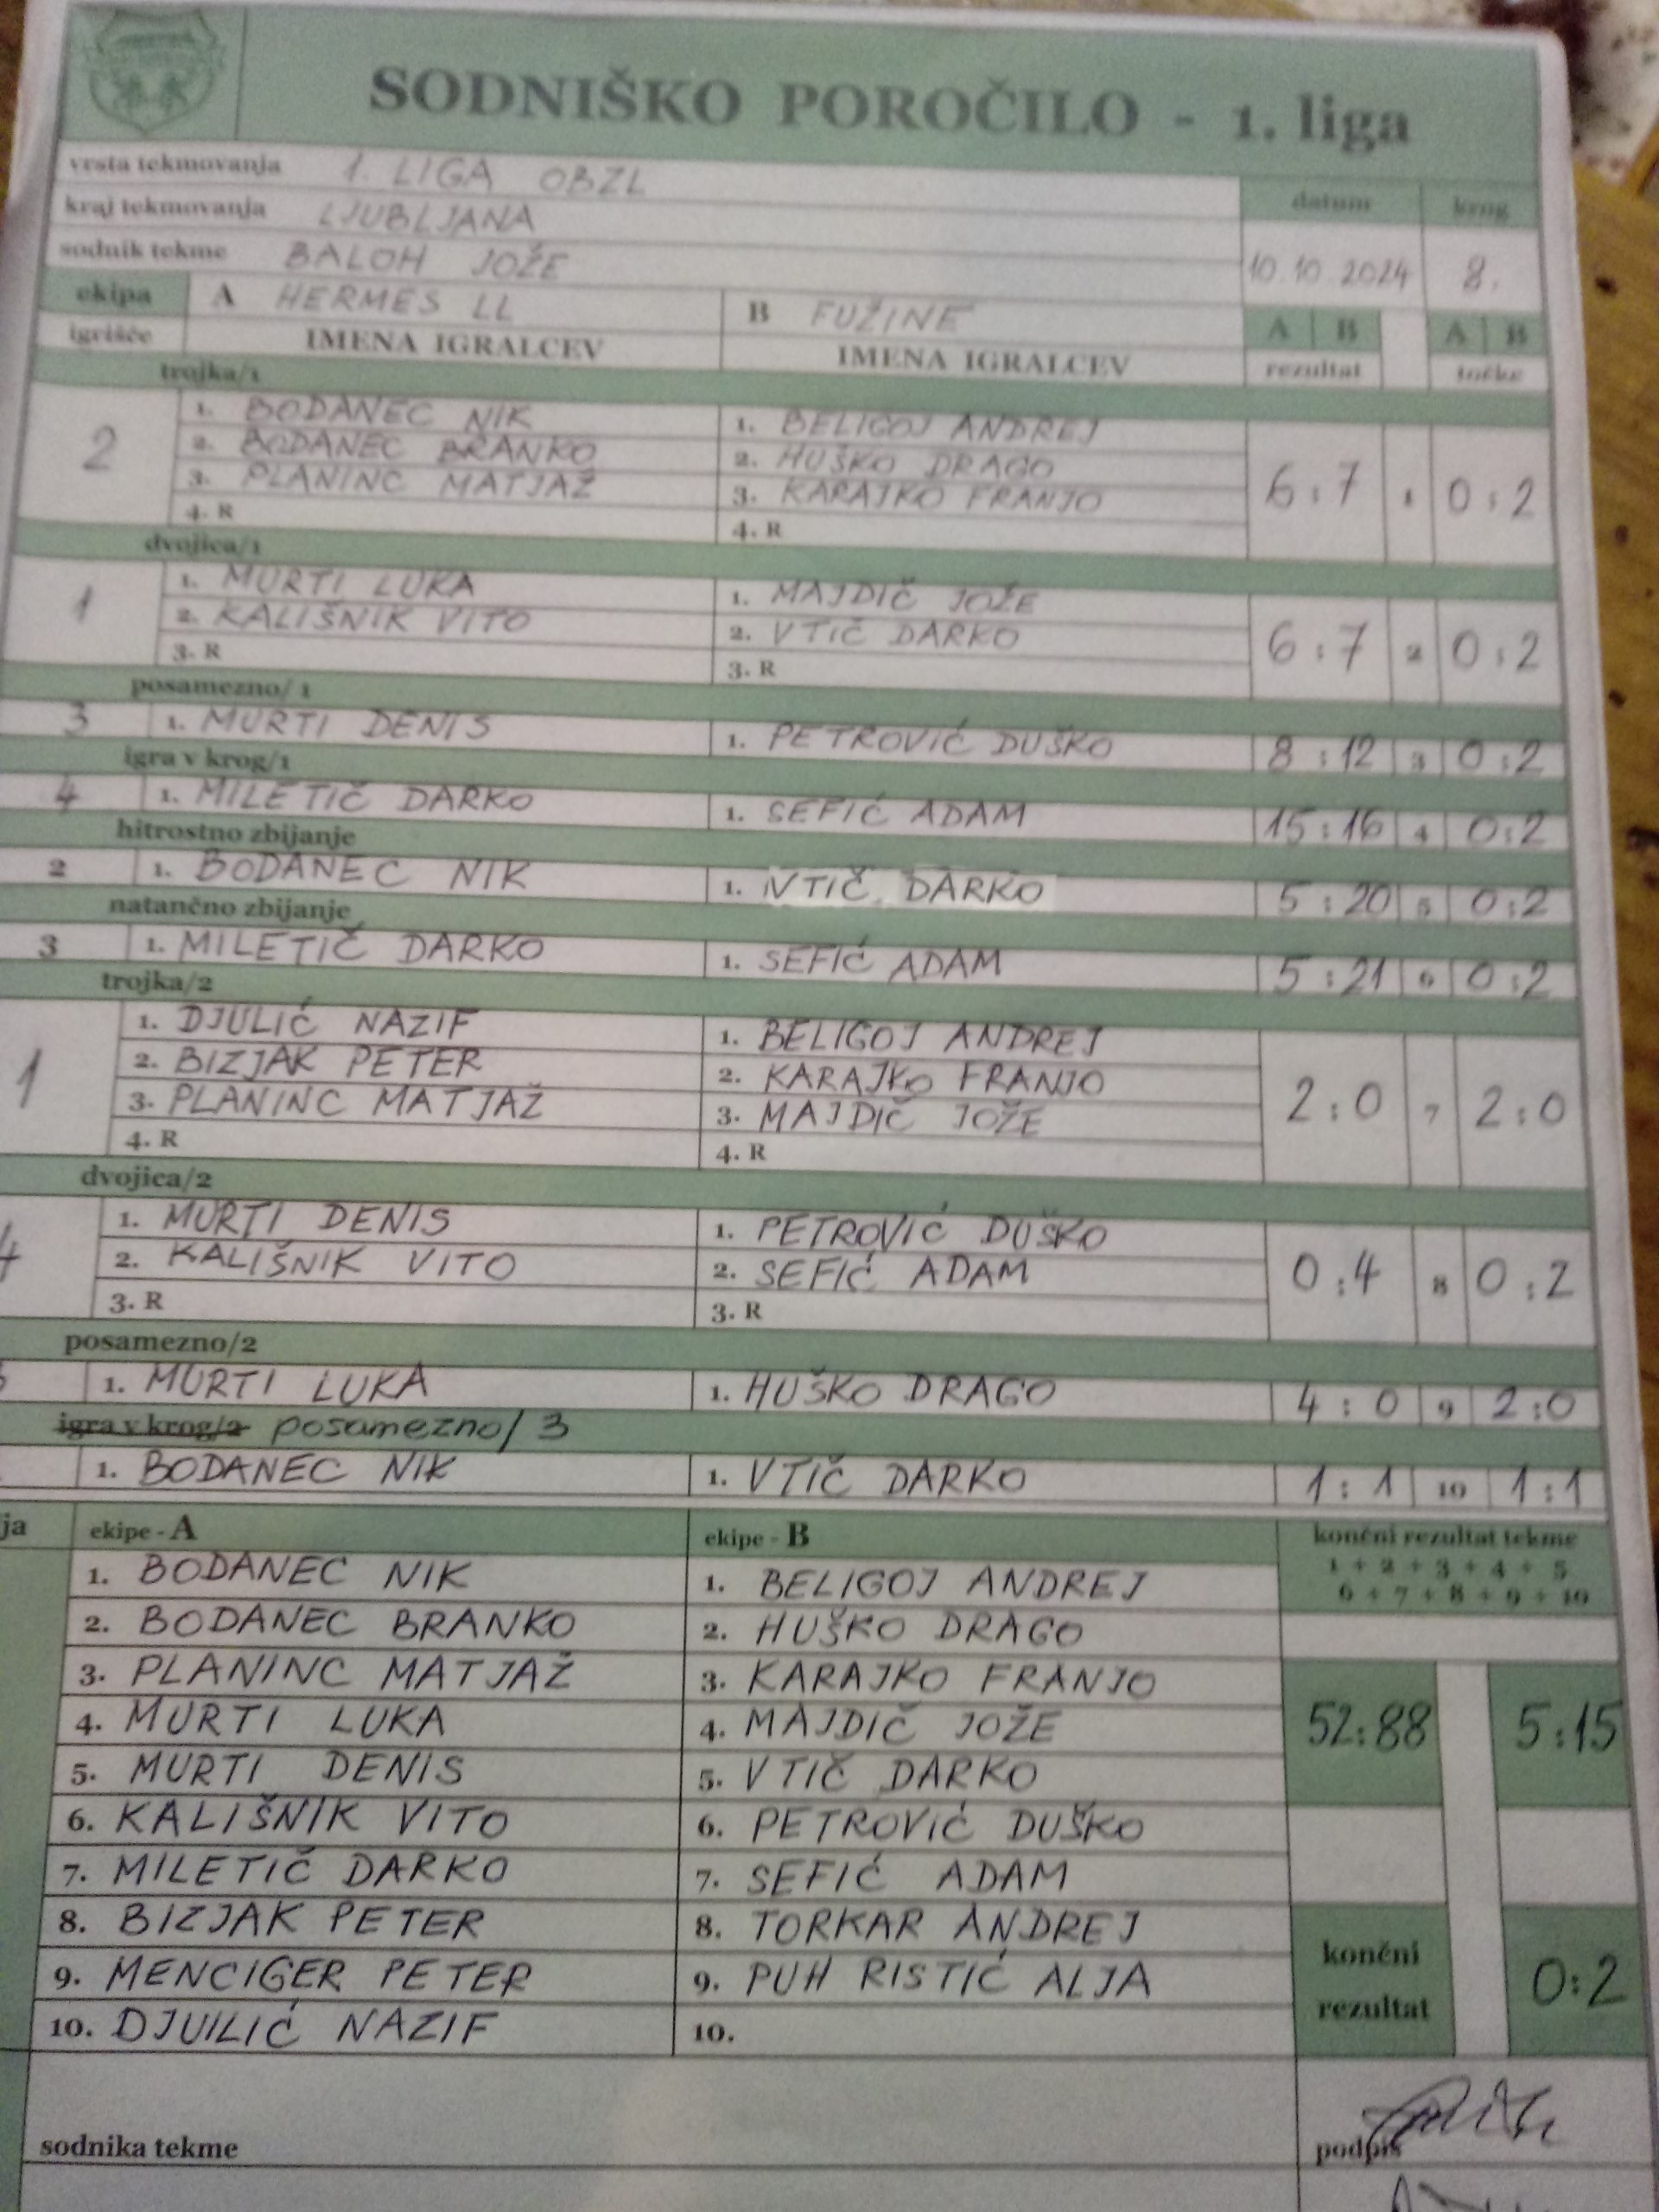 SODNIŠKO POROČILO - 1. liga
vrsta tekmovanja 1. LIGA OBZL
datum krog
kraj tekmovanja LJUBLJANA
sodnik tekme BALOH JOŽE
10.10.2024 8.
ekipa A HERMES LL B FUŽINE A B A B
igrišče IMENA IGRALCEV IMENA IGRALCEV rezultat točke
trojka/1
2 6:7 1 0:2
1. BODANEC NIK 1. BELIGOJ ANDREJ
2. BODANEC BRANKO 2. HUŠKO DRAGO
3. PLANINC MATJAŽ 3. KARAJKO FRANJO
4. R 4. R
dvojica/1
1 6:7 2 0:2
1. MURTI LUKA 1. MAJDIČ JOŽE
2. KALIŠNIK VITO 2. VTIČ DARKO
3. R 3. R
posamezno/ 1
3 1. MURTI DENIS 1. PETROVIĆ DUŠKO 8:12 3 0:2
igra v krog/1
4 1. MILETIČ DARKO 1. SEFIĆ ADAM 15:16 4 0:2
hitrostno zbijanje
2 1. BODANEC NIK 1. VTIČ DARKO 5:20 5 0:2
natančno zbijanje
3 1. MILETIČ DARKO 1. SEFIĆ ADAM 5:21 6 0:2
trojka/2
1 2:0 7 2:0
1. DJULIĆ NAZIF 1. BELIGOJ ANDREJ
2. BIZJAK PETER 2. KARAJKO FRANJO
3. PLANINC MATJAŽ 3. MAJDIČ JOŽE
4. R 4. R
dvojica/2
4 0:4 8 0:2
1. MURTI DENIS 1. PETROVIĆ DUŠKO
2. KALIŠNIK VITO 2. SEFIĆ ADAM
3. R 3. R
posamezno/2
1. MURTI LUKA 1. HUŠKO DRAGO 4:0 9 2:0
igra v krog/2 posamezno/3
1. BODANEC NIK 1. VTIČ DARKO 1:1 10 1:1
ja ekipe - A ekipe - B končni rezultat tekme
1 + 2 + 3 + 4 + 5
6 + 7 + 8 + 9 + 10
1. BODANEC NIK 1. BELIGOJ ANDREJ
2. BODANEC BRANKO 2. HUŠKO DRAGO
3. PLANINC MATJAŽ 3. KARAJKO FRANJO
4. MURTI LUKA 4. MAJDIČ JOŽE 52:88 5:15
5. MURTI DENIS 5. VTIČ DARKO
6. KALIŠNIK VITO 6. PETROVIĆ DUŠKO
7. MILETIČ DARKO 7. SEFIĆ ADAM
8. BIZJAK PETER 8. TORKAR ANDREJ
9. MENCIGER PETER 9. PUH RISTIĆ ALJA
10. DJUILIĆ NAZIF 10.
končni rezultat 0:2
sodnika tekme podpis